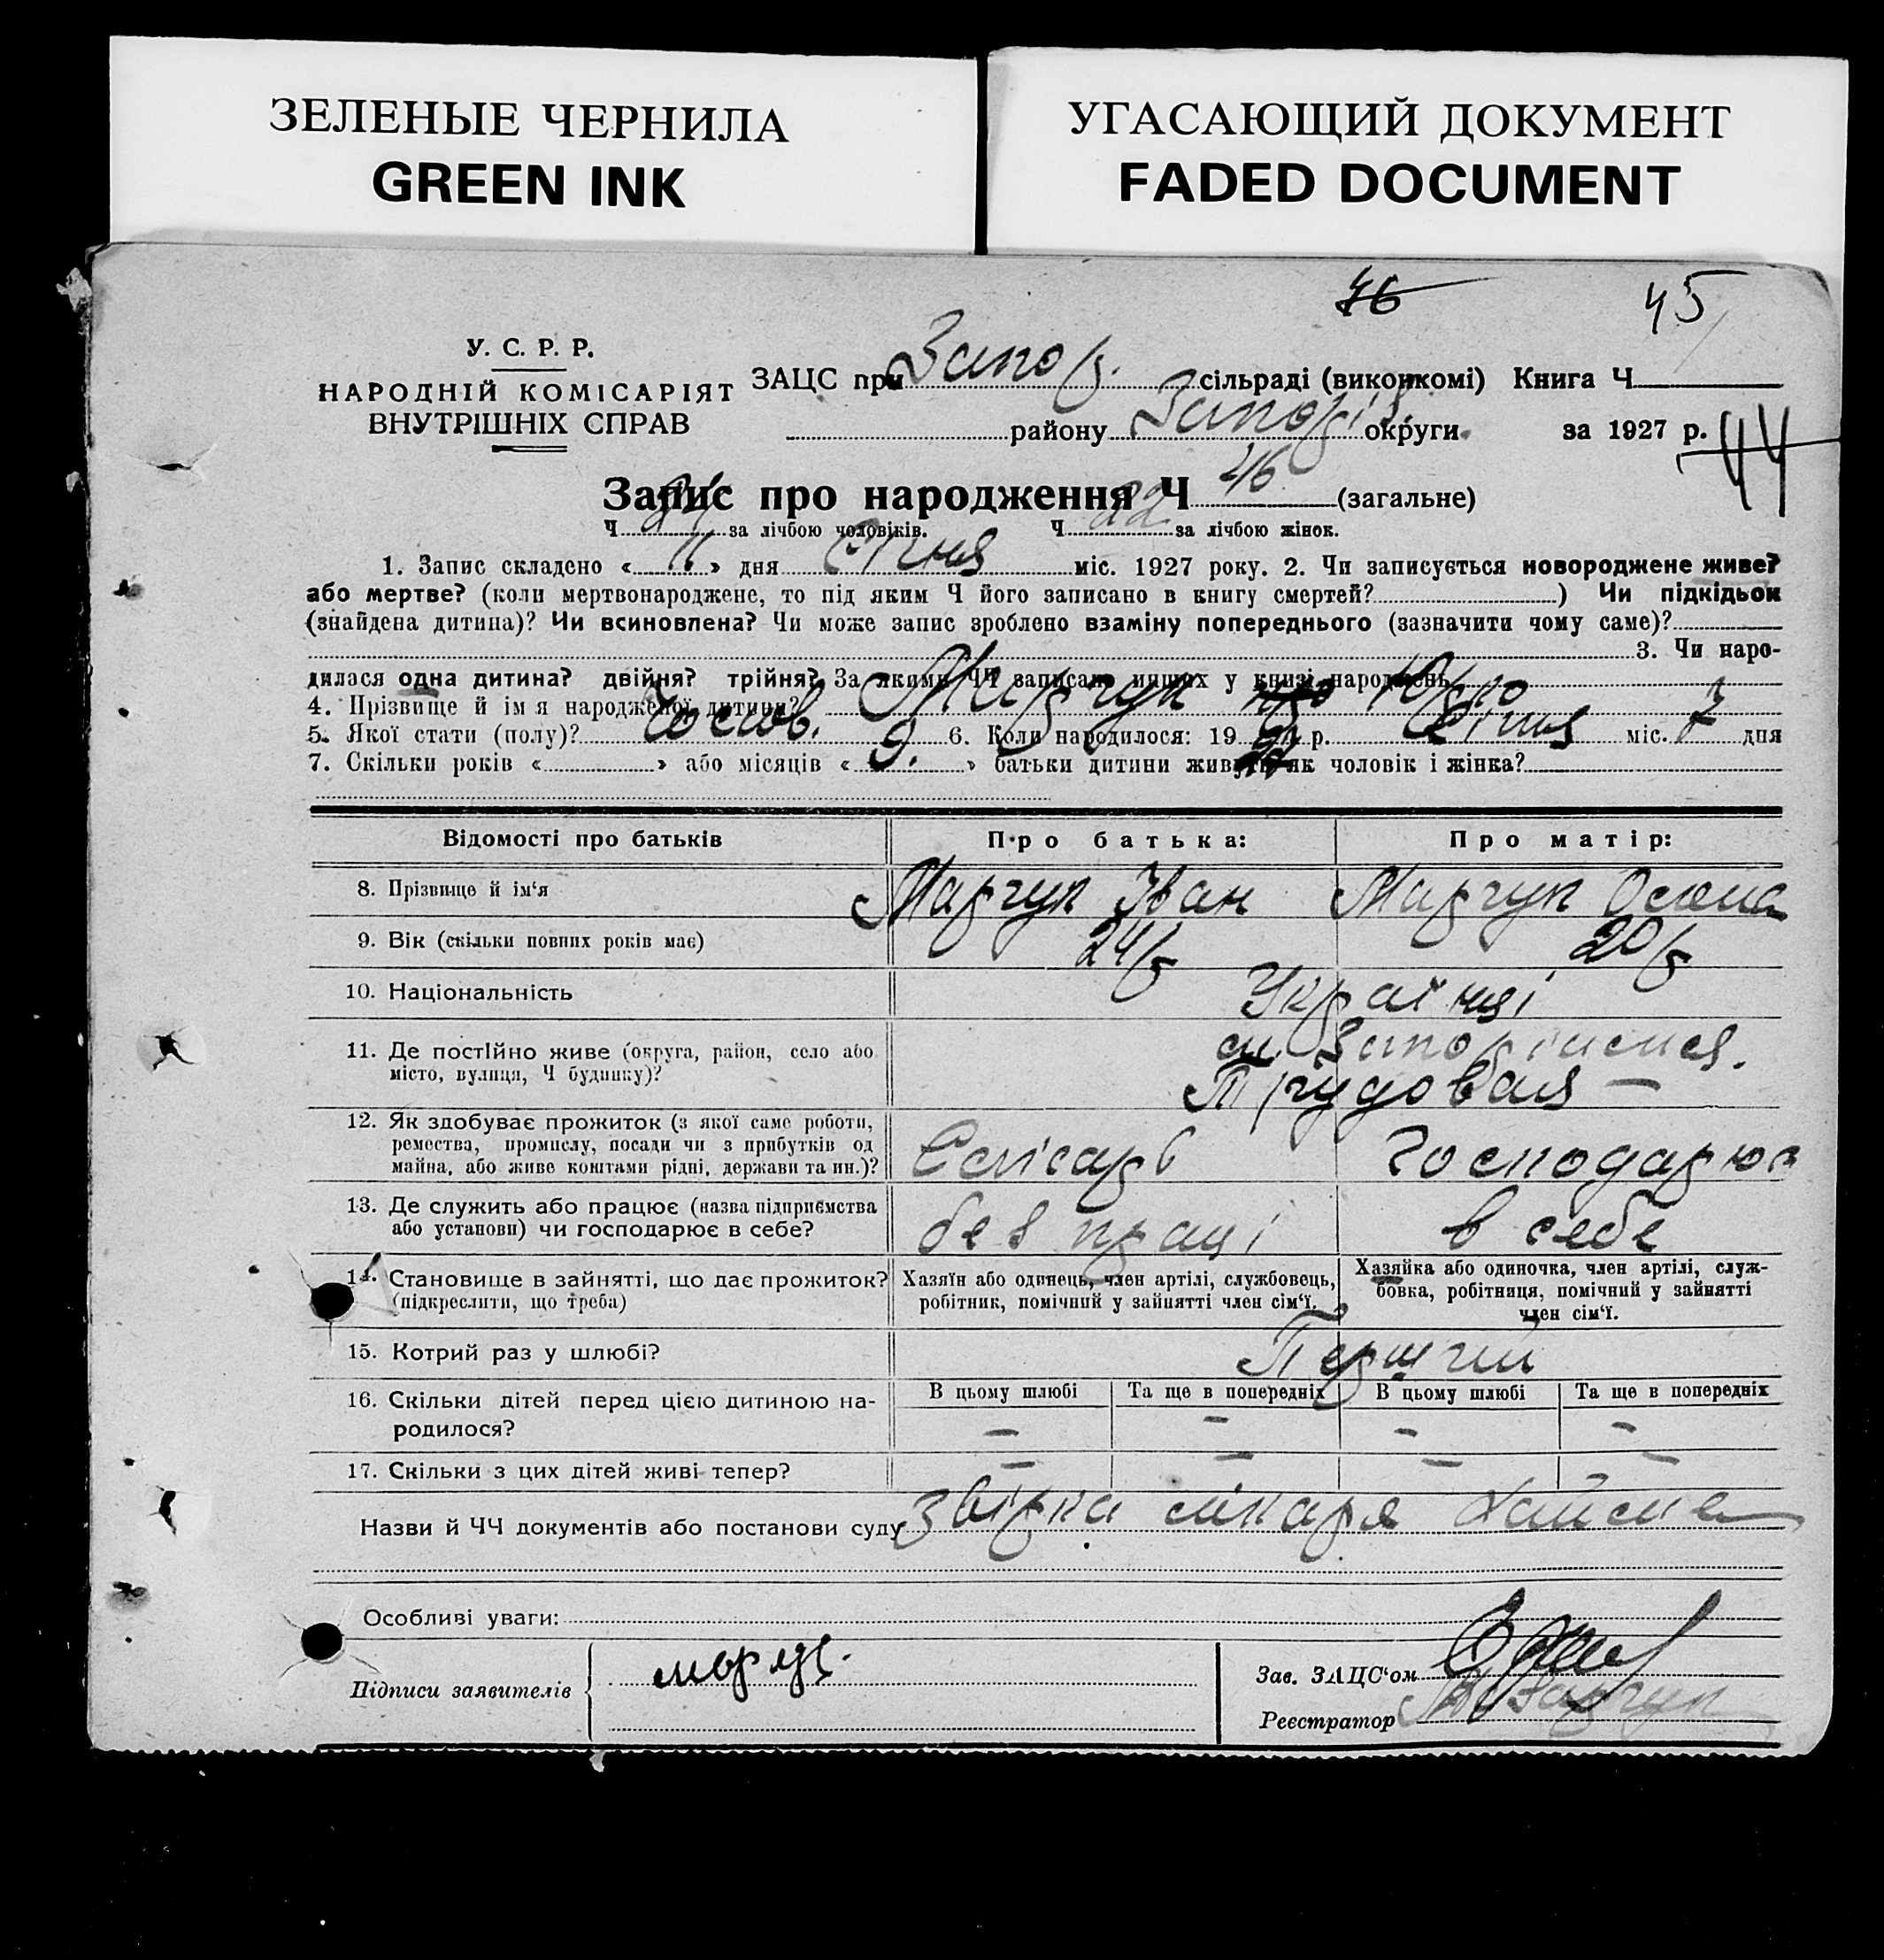 ЗЕЛЕНЫЕ ЧЕРНИЛА
GREEN INK
УГАСАЮЩИЙ ДОКУМЕНТ
FADED DOCUMENT
46
45
У. С. Р. Р.
НАРОДНІЙ КОМІСАРІЯТ
ВНУТРІШНІХ СПРАВ
ЗАЦС при Запор. сільраді (виконкомі) Книга Ч
району Запоріз. округи за 1927 р.
44
Запис про народження Ч 46 (загальне)
Ч 24 за лічбою чоловіків. Ч 22 за лічбою жінок.
1. Запис складено « 11 » дня Січня міс. 1927 року. 2. Чи записується новороджене живе?
або мертве? (коли мертвонароджене, то під яким Ч його записано в книгу смертей? ) Чи підкідьок
(знайдена дитина)? Чи всиновлена? Чи може запис зроблено взаміну попереднього (зазначити чому саме)?
3. Чи наро-
дилася одна дитина? двійня? трійня? За якими ЧЧ записано инших у книзі народжень
4. Прізвище й імя народженої дитини? Марчук
5. Якої стати (полу)? Чолов. 6. Коли народилося: 19 р. Січня міс. 7 дня
7. Скільки років « » або місяців « 9. » батьки дитини живуть як чоловік і жінка?
Відомості про батьків Про батька: Про матір:
8. Прізвище й ім'я Марчук Іван Марчук Оксена
9. Вік (скільки повних років має) 24/р 20/р
10. Національність Українці
11. Де постійно живе (округа, район, село або
місто, вулиця, Ч будинку)?
12. Як здобуває прожиток (з якої саме роботи,
ремества, промислу, посади чи з прибутків од
майна, або живе коштами рідні, держави та ин.)? Господарює
13. Де служить або працює (назва підприємства
або установи) чи господарює в себе? без праці в себе
14. Становище в зайнятті, що дає прожиток?
(підкреслити, що треба)
Хазяїн або одинець, член артілі, службовець,
робітник, помічний у зайнятті член сім'ї.
Хазяйка або одиночка, член артілі, служ-
бовка, робітниця, помічний у зайнятті
член сім'ї.
15. Котрий раз у шлюбі? Перший
16. Скільки дітей перед цією дитиною на-
родилося?
В цьому шлюбі Та ще в попередніх В цьому шлюбі Та ще в попередніх
– – – –
17. Скільки з цих дітей живі тепер? – – – –
Назви й ЧЧ документів або постанови суду звірка лікаря
Особливі уваги:
Підписи заявителів
Зав. ЗАЦС'ом
Реєстратор